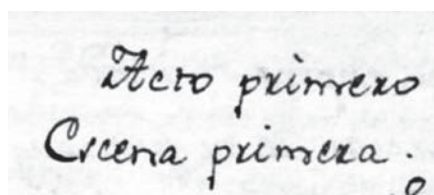 Acto primero
Escena primera.